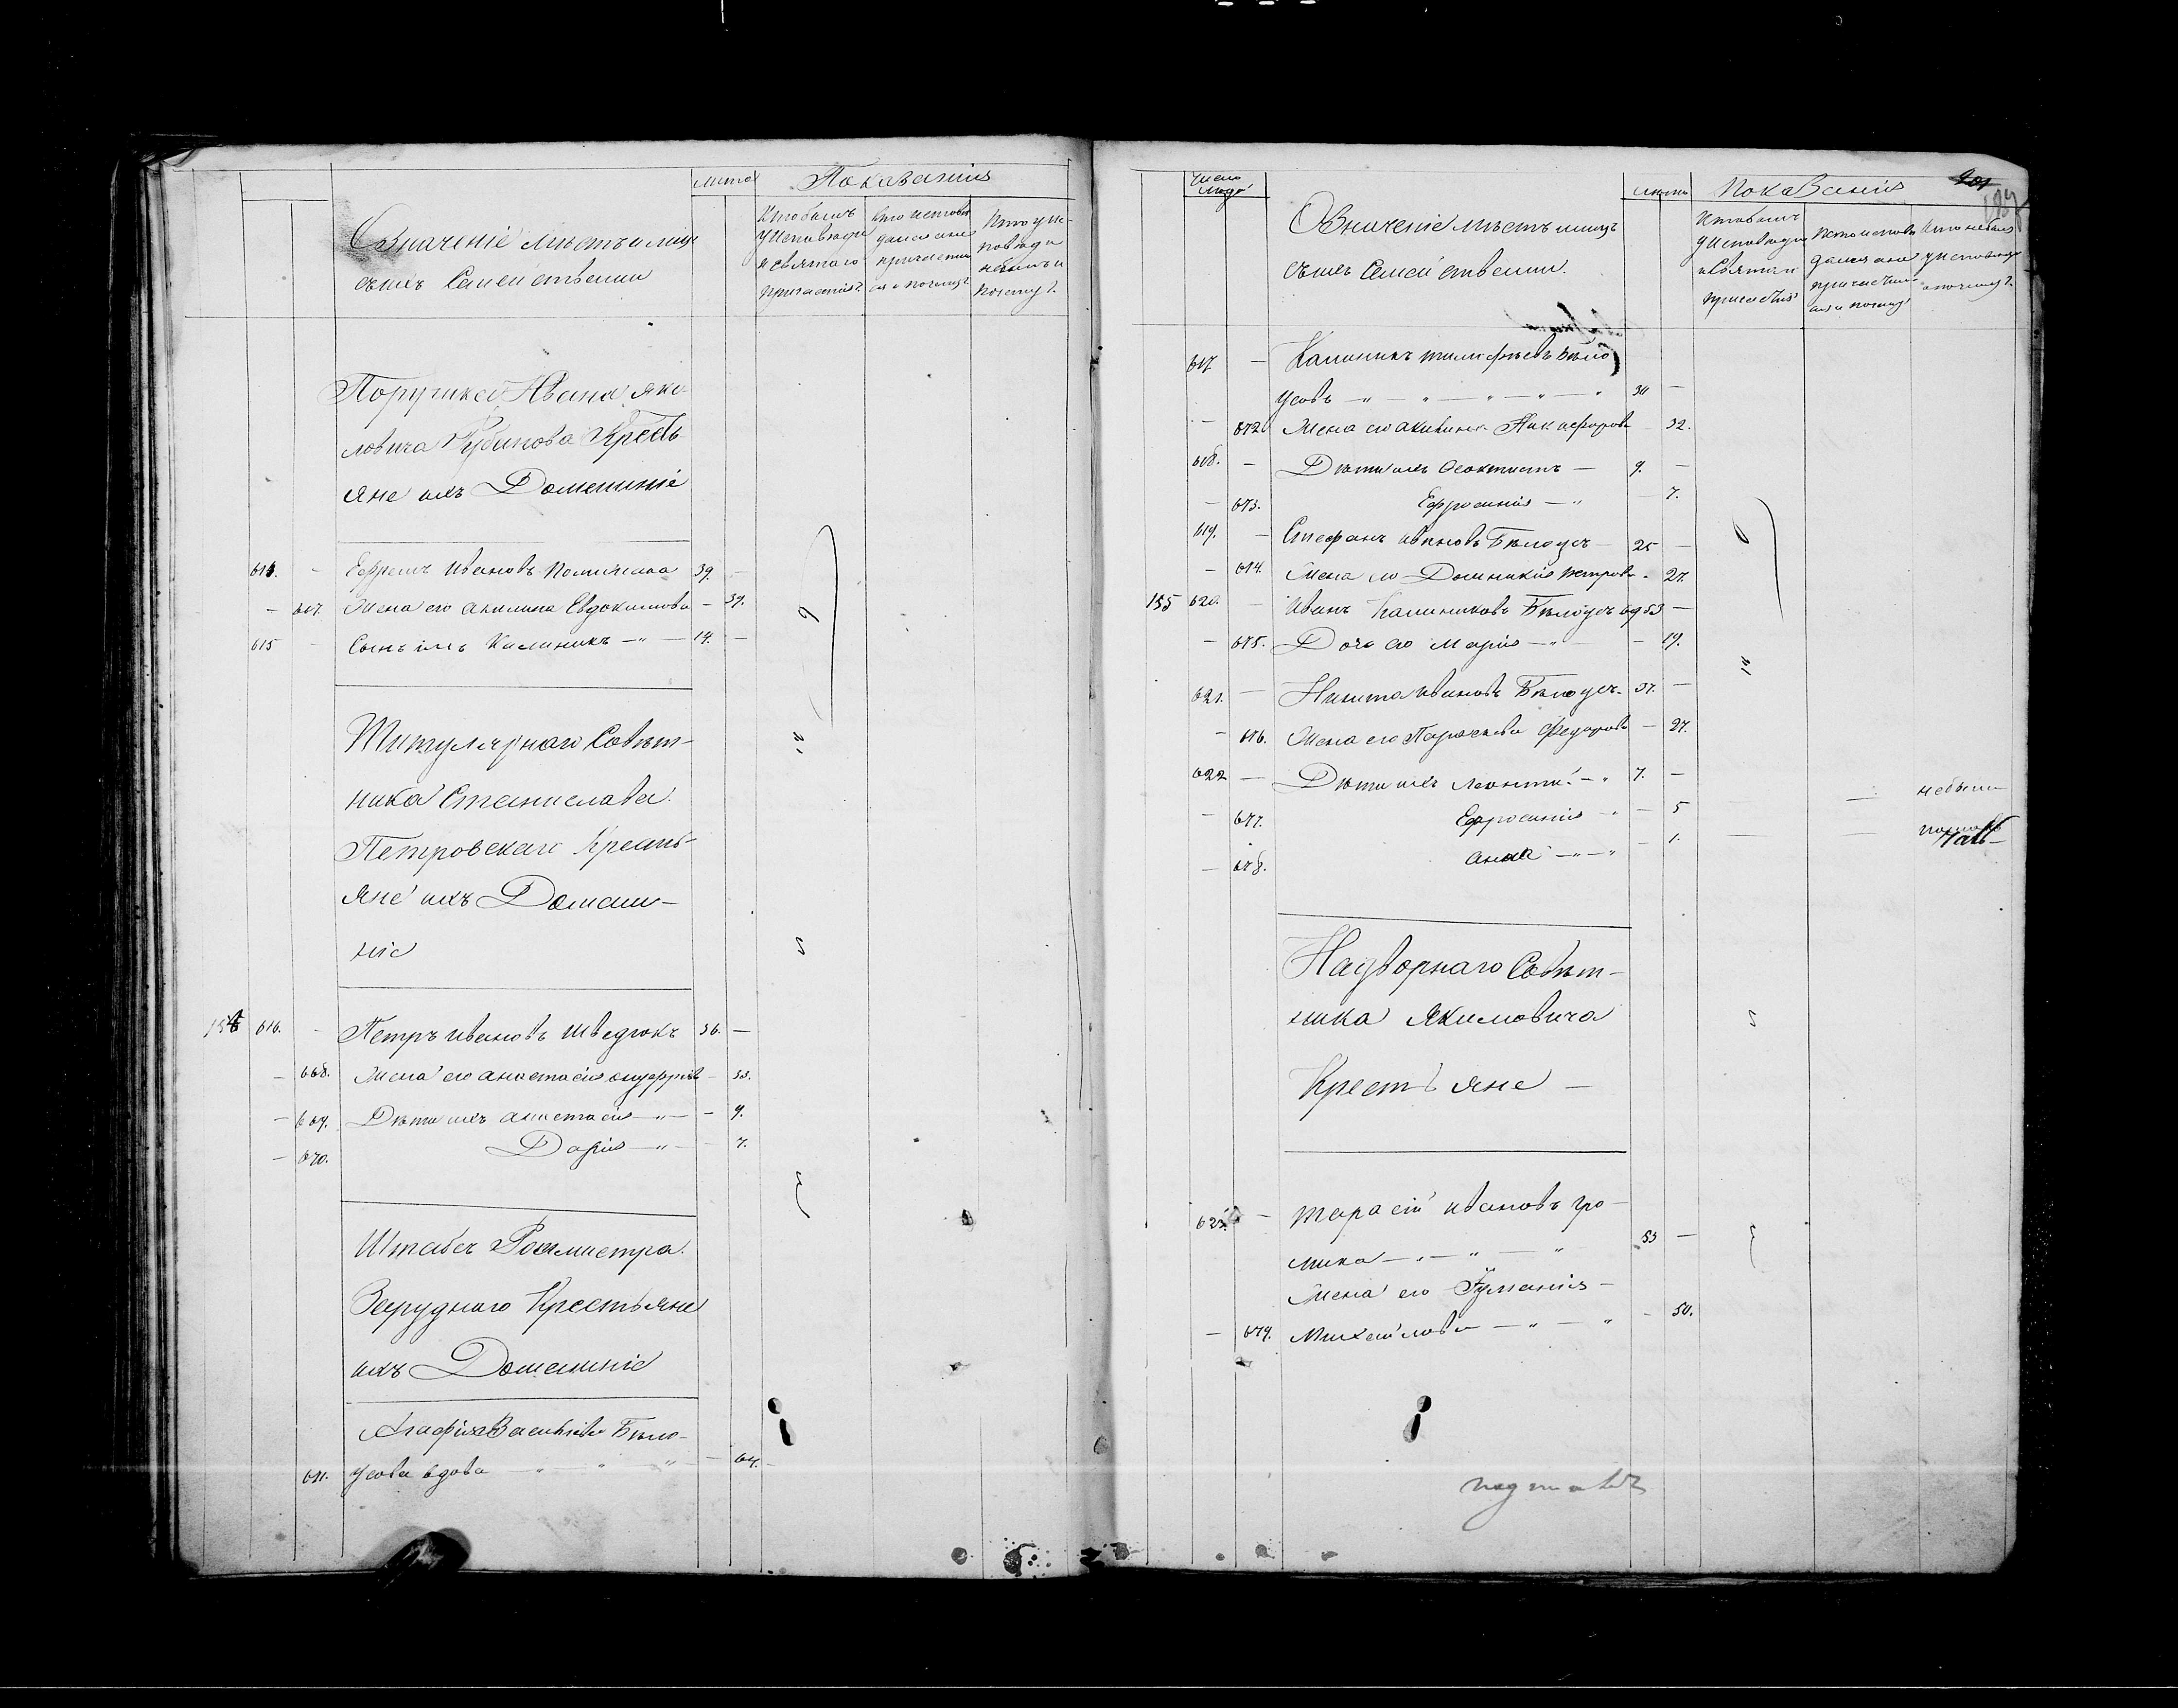 Лѣта Показанія
Означеніе мѣстъ и лицъ
съ ихъ Семействами
Кто былъ
у Исповѣди
и святаго
причастія?
Кто исповѣ
дался а не
причасти
ся и почему?
Кто у ис-
повѣди
небылъ и
почему?
Поручика Ивана Яко-
вовича Рубанова Кресть
яне ихъ Домашніе
614. - Ефремъ Ивановъ 39. -
- 667. Жена его Акилина Евдокимова - 39.
615 - Сынъ ихъ Калиникъ - 14. -
Титулярнаго Совѣт-
ника Станислава
Петровскаго Кресть-
яне ихъ Домаш-
ніе
154 616. - Петръ Ивановъ Шведюкъ 36. -
- 668. Жена его Анастасія Онуфріева - 33.
- 669. Дѣти ихъ Анастасія - 9.
- 670. Дарія - 7.
Штабсъ Ротмистра
Заруднаго Крестьяне
ихъ Домашніе
Агафія Васильева Бѣло-
671. усова вдова - 64.
Число
людей
Означеніе мѣстъ и лицъ
съ ихъ Семействами.
Лѣта Показанія 201
Кто былъ
у Исповѣди
и Святаго
причастія
Кто исповѣ
дался а не
причасти-
лся и почему?
Кто небылъ
у исповѣди
и почему?
617 - Калиникъ Тимофѣевъ Бѣло
усовъ 34 -
- 672 Жена его Акилина Никифорова - 32.
618. - Дѣти ихъ Феоктистъ - 9. -
- 673. Ефросинія - 7.
619. - Стефанъ Ивановъ Бѣлоусъ - 25 -
- 674. Жена его Домникія Петрова - 27.
155 620. - Иванъ Калиниковъ Бѣлоусъ 69 53 -
- 675. Дочь его Марія - 19.
621. - Никита Ивановъ Бѣлоусъ - 37. -
- 676. Жена его Параскева Федорова - 27.
622 - Дѣти ихъ Леонтій - 7. -
- 677. Ефросинія - 5 небыли
- 678. Анна - 1.
Надворнаго Совѣт-
ника Якимовича
Крестьяне -
623 - Тарасій Ивановъ Гро-
мика 53 -
Жена его Іуліанія -
- 679. Михайлова - 50.